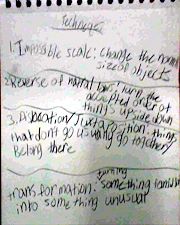 Techniques
1. Impossible scale: change the normal
size of objects
2. Reverse of natural laws: turn the
accepted order of
things upside down
3. Dislocation/Juxtaposition: things
that don't go usually go together/
Belong there
turning
transformation: something familiar
into something unusual